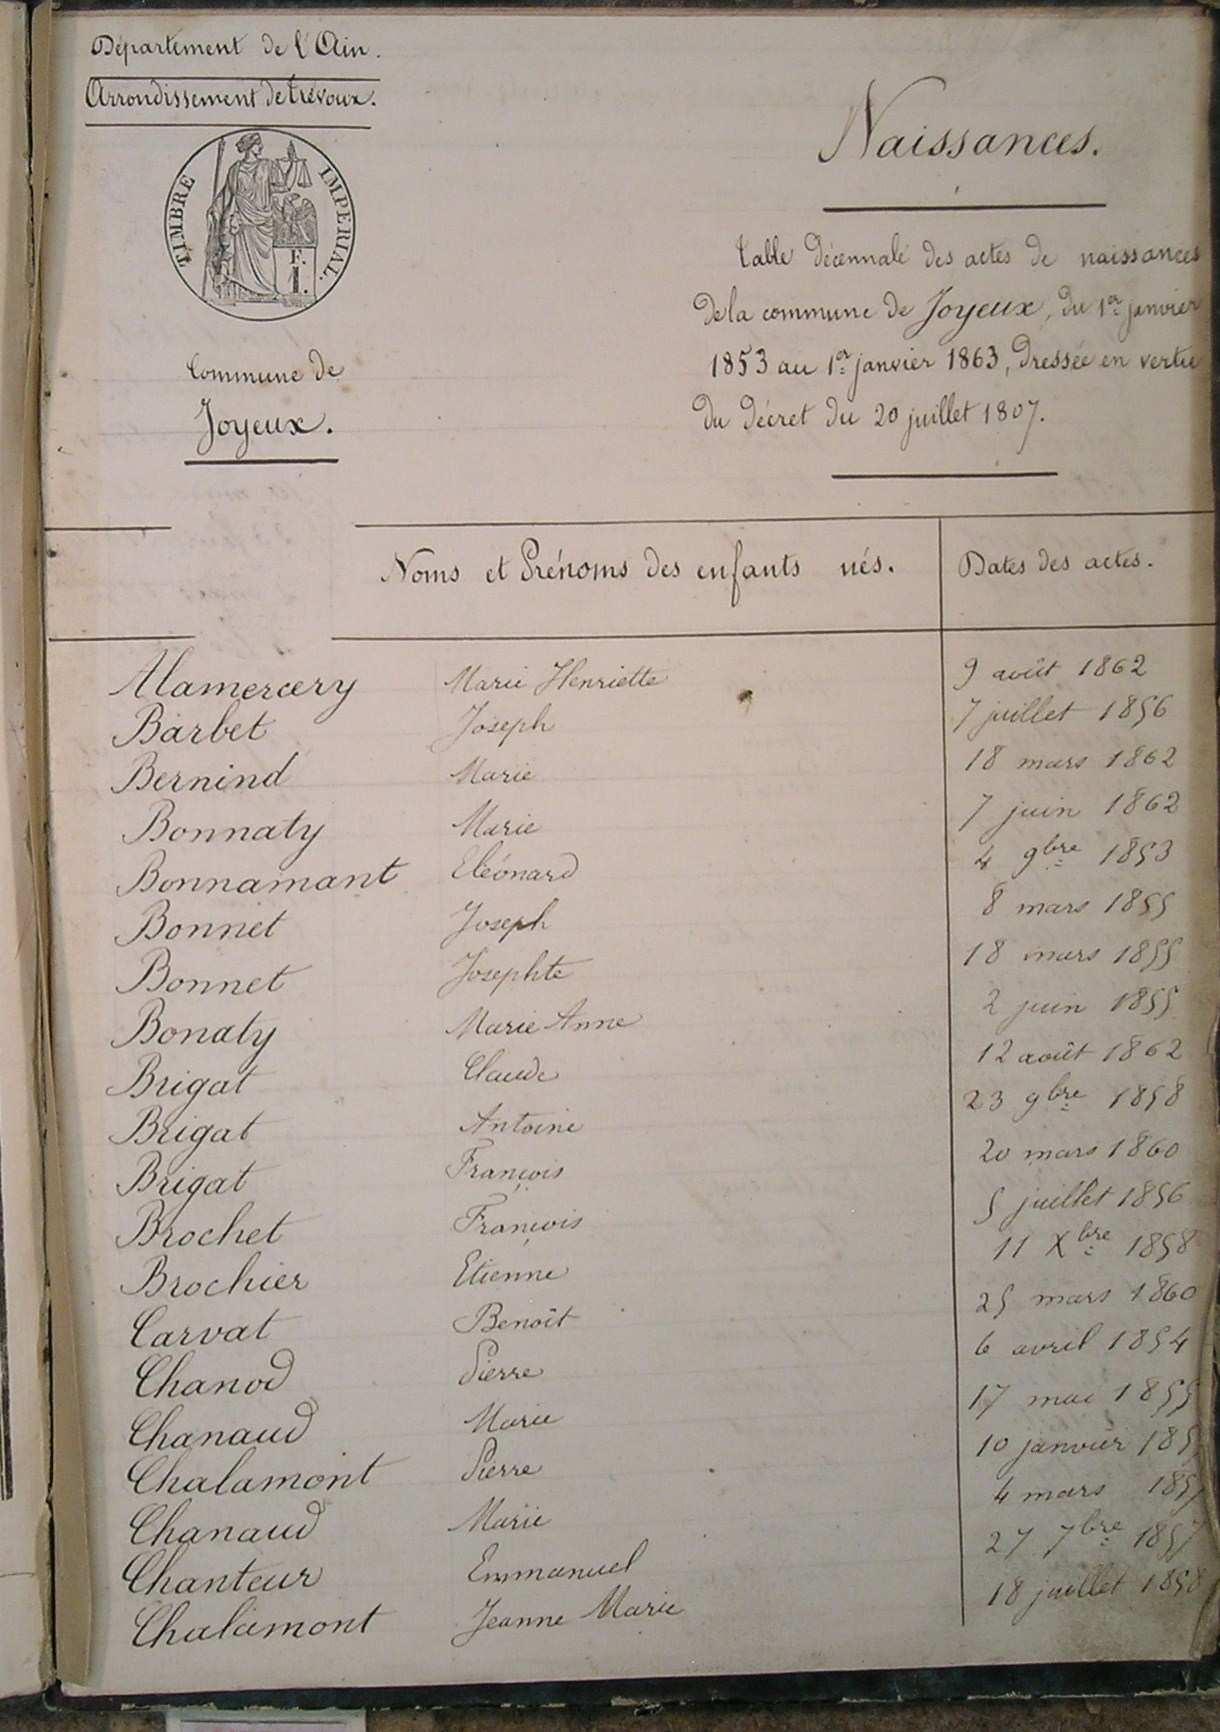 Département de l'Ain.
Arrondissement de Trévoux.
TIMBRE IMPERIAL.
F.
1.
Commune de
Joyeux.
Naissances.
Table décennale des actes de naissances
de la commune de Joyeux, du 1er janvier
1853 au 1er janvier 1863, dressée en vertu
du décret du 20 juillet 1807.
Noms et Prénoms des enfants nés. Dates des actes.
Alamercery Marie Henriette 9 août 1862
Barbet Joseph 7 juillet 1856
Bernind Marie 18 mars 1862
Bonnaty Marie 7 juin 1862
Bonnamant Eléonard 4 9bre 1853
Bonnet Joseph 8 mars 1855
Bonnet Josephte 18 mars 1855
Bonaty Marie Anne 2 juin 1855
Brigat Claude 12 août 1862
Brigat Antoine 23 9bre 1858
Brigat François 20 mars 1860
Brochet François 5 juillet 1856
Brochier Etienne 11 Xbre 1858
Carvat Benoît 25 mars 1860
Chanod Pierre 6 avril 1854
Chanaud Marie 17 mai 1855
Chalamont Pierre 10 janvier
Chanaud Marie 4 mars 1857
Chanteur Emmanuel 27 7bre 1857
Chalamont Jeanne Marie 18 juillet 1858